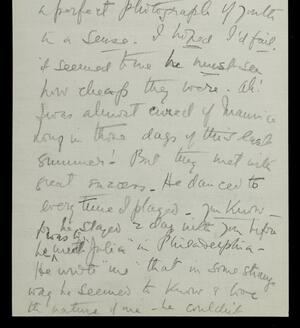 a perfect photograph of youth
in a sense. I hoped I'd fail
it seemed to me he must see
how cheap they were. Ah!
I was almost cured of
long in those days of this last
summer! But they met with
great success. He danced to
every time I played. You know
for he stayed a day with you before
he was to meet "Julia" in Philadelphia -
He wrote "me" that in some strange
way he seemed to know & love
the nature of me - he couldn't